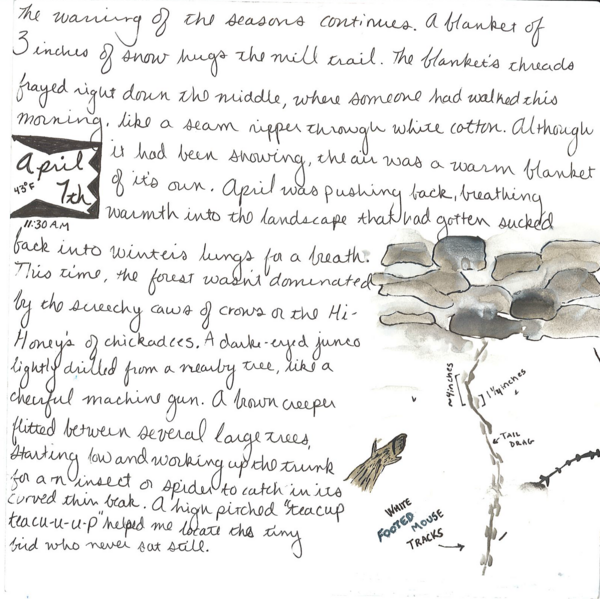 The warring of the seasons continues. A blanket of
3 inches of snow hugs the mill trail. The blanket's threads
frayed right down the middle, where someone had walked this
morning, like a seam ripper through white cotton. Although
it had been snowing, the air was a warm blanket
of it's own. April was pushing back, breathing
warmth into the landscape that had gotten sucked
April
7th
43°F
11:30 AM
back into winter's lungs for a breath.
This time, the forest wasn't dominated
by the screechy caws of crows or the Hi-
Honey's of chickadees. A dark-eyed junco
lightly drilled from a nearby tree, like a
cheerful machine gun. A brown creeper
flitted between several large trees,
starting low and working up the trunk
for an insect or spider to catch in its
curved thin beak. A high pitched "teacup
teacu-u-u-p" helped me locate the tiny
bird who never sat still.
~4 inches
1 1/4 inches
TAIL
DRAG
WHITE
FOOTED MOUSE
TRACKS